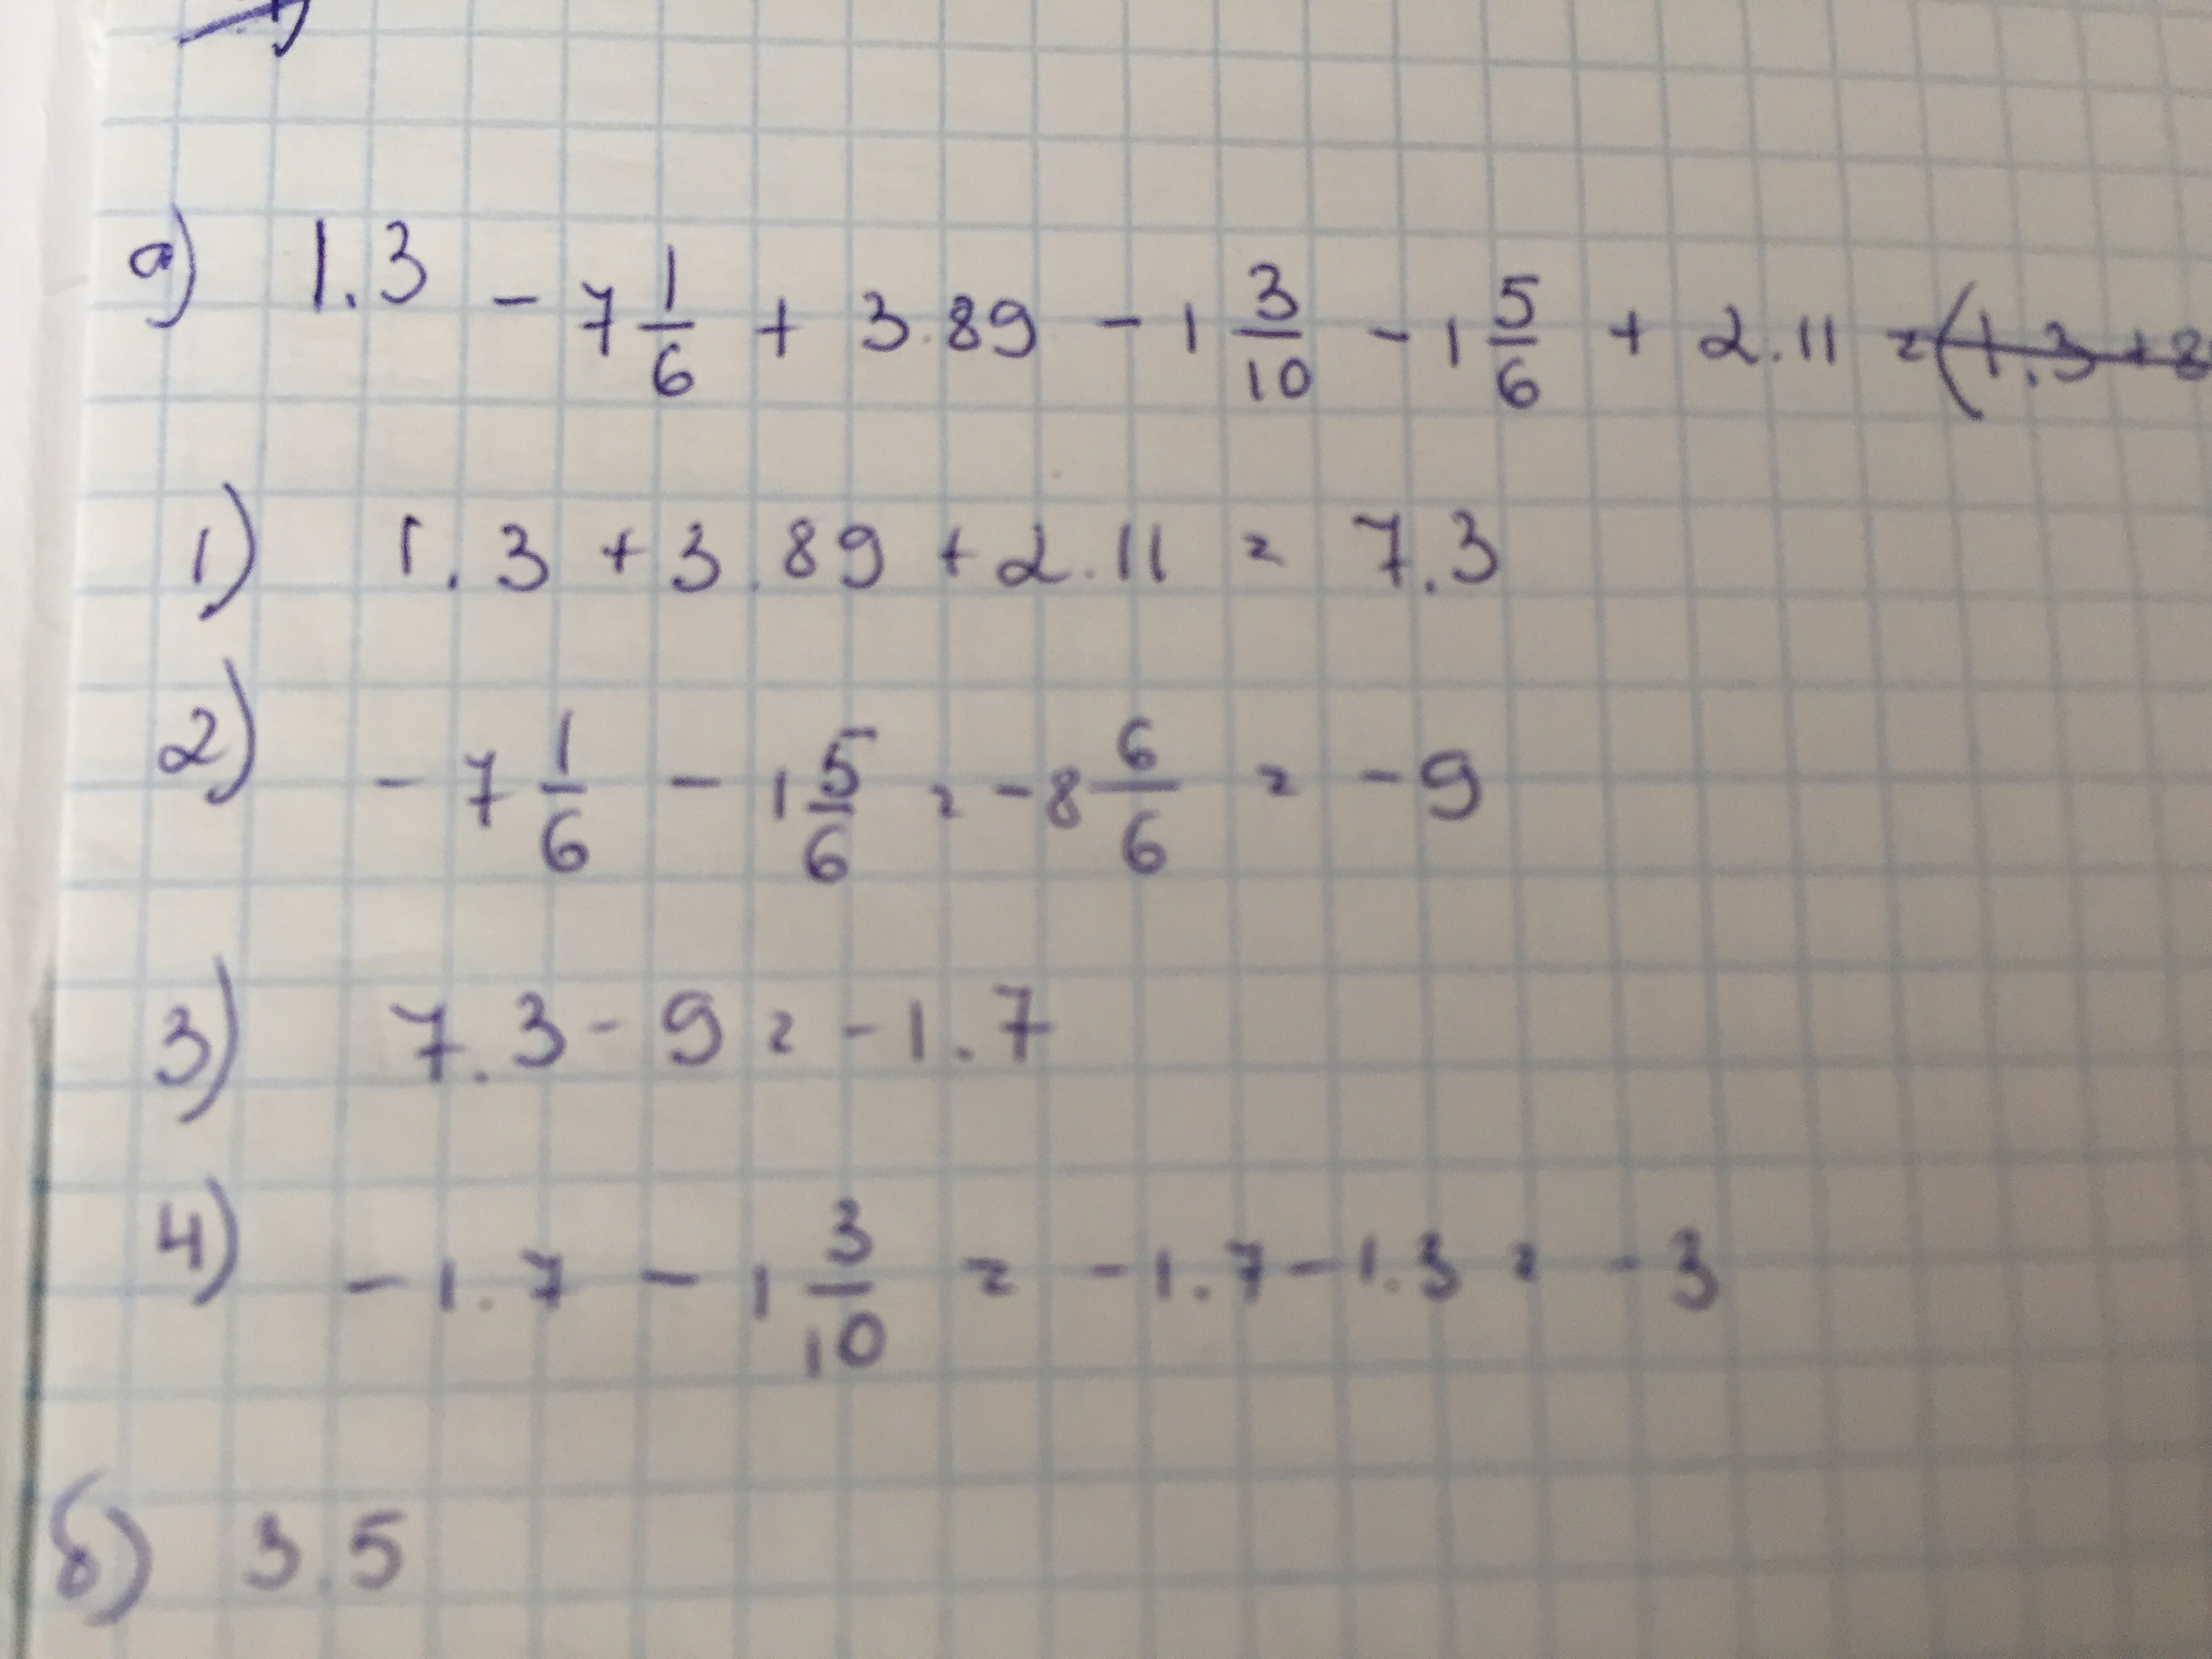 а) 1.3 - 7 1/6 + 3.89 - 1 3/10 - 1 5/6 + 2.11 = (1.3 + 8
1) 1.3 + 3.89 + 2.11 = 7.3
2) - 7 1/6 - 1 5/6 = - 8 6/6 = - 9
3) 7.3 - 9 = - 1.7
4) - 1.7 - 1 3/10 = - 1.7 - 1.3 = - 3
б) 3.5